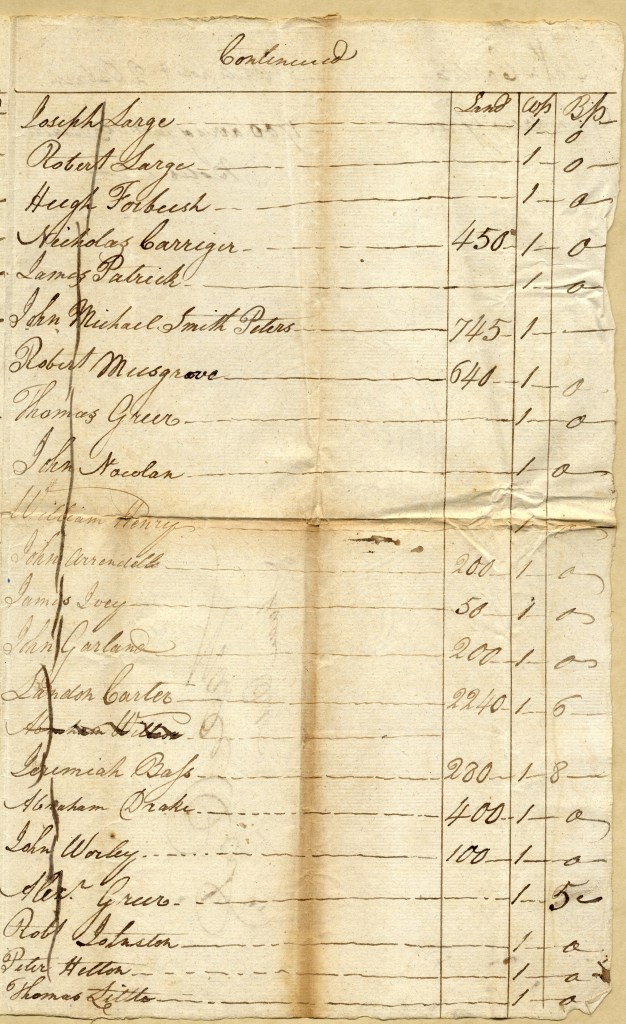 Continued
Land Wp Bp
Joseph Large 1 0
Robert Large 1 0
Hugh Forbush 1 0
Nicholas Carriger 450 1 0
James Patrick 1 0
John Michael Smith Peters 745 1
Robert Musgrove 640 1 0
Thomas Greer 1 0
John Nowlan 1 0
William Henry 1
John Arrendell 200 1 0
James Ivey 50 1 0
John Garland 200 1 0
Landon Carter 2240 1 6
Abraham
Jeremiah Bass 280 1 8
Abraham Drake 400 1 0
John Worley 100 1 0
Alexr. Greer 1 5
Robt Johnston 1 0
Peter Hetton 1 0
Thomas Little 1 0